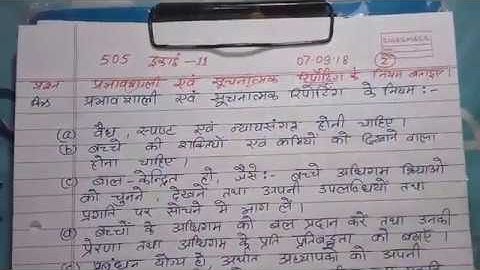 505 इकाई -11 07-09-18 2
प्रश्न प्रभावशाली एवं सूचनात्मक रिपोर्टिंग के नियम बताइए।
प्रभावशाली एवं सूचनात्मक रिपोर्टिंग के नियम :-
(a) वैध, स्पष्ट एवं न्यायसंगत होनी चाहिए।
(b) बच्चे की शक्तियों एवं कमियों को दिखाने वाला
होना चाहिए।
(c) बाल-केन्द्रित हो, जैसे:- बच्चे अधिगम क्रियाओं
को चुनने, देखने तथा अपनी उपलब्धियों तथा
प्रगति पर सोचने में भाग लें।
(d) बच्चों के अधिगम को बल प्रदान करे तथा उनकी
प्रेरणा तथा अधिगम के प्रति प्रतिबद्धता को बढ़ाए।
प्रबंधन योग्य हो, अर्थात अध्यापकों को अपनी